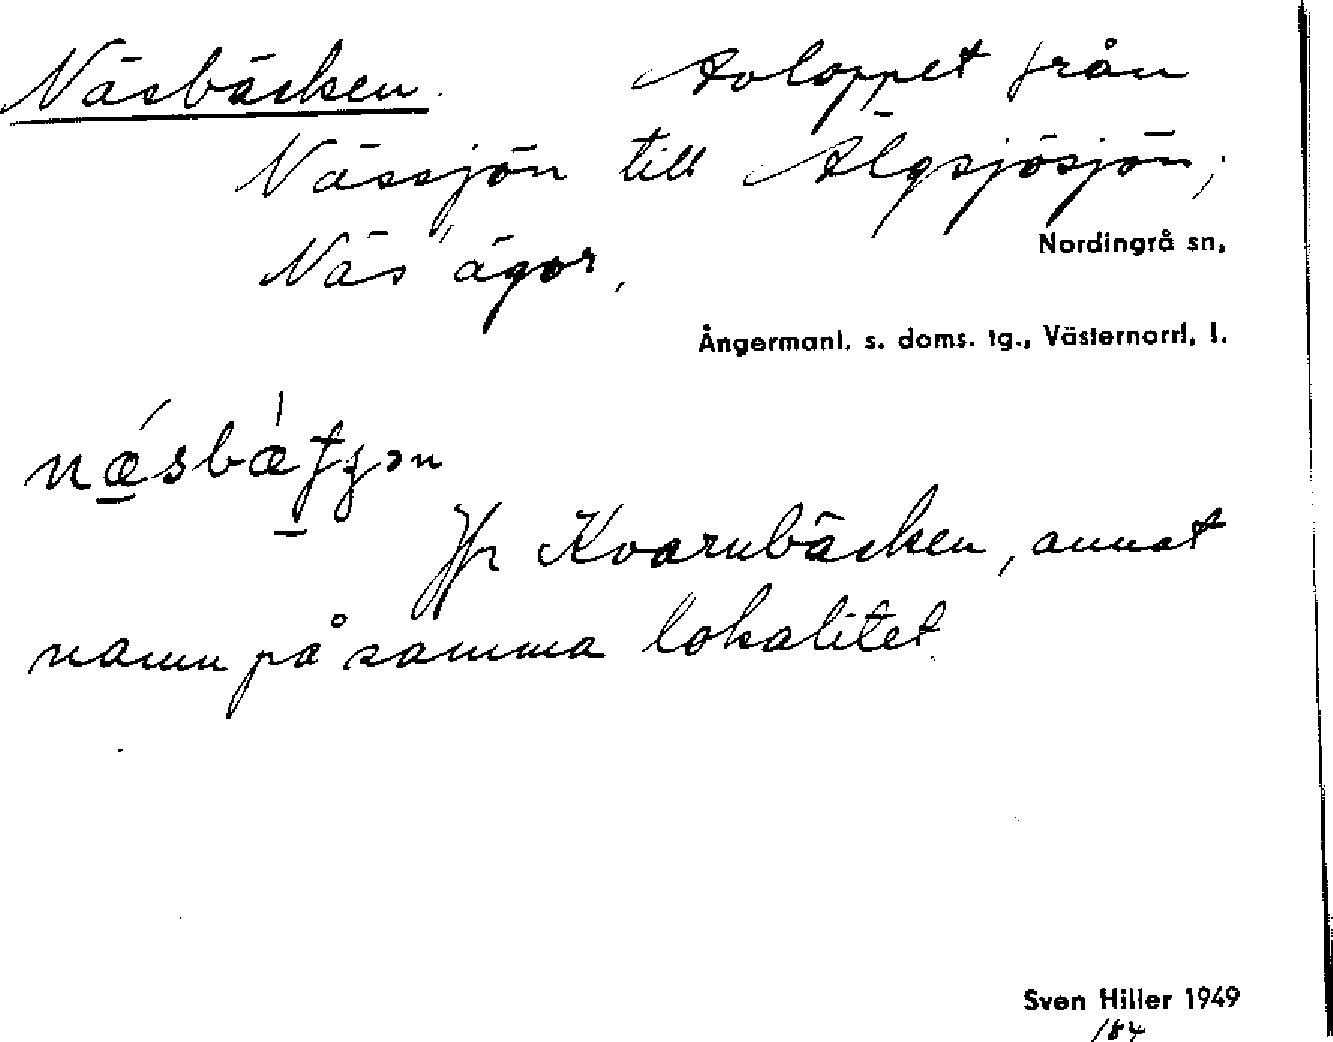 Näsbäcken. Avloppet från
Nässjön till Älgsjösjön,
Näs' ägor.
Nordingrå sn,
Ångermanl. s. doms. tg., Västernorrl. l.
Jfr Kvarnbäcken, annat
namn på samma lokalitet.
Sven Hiller 1949
184